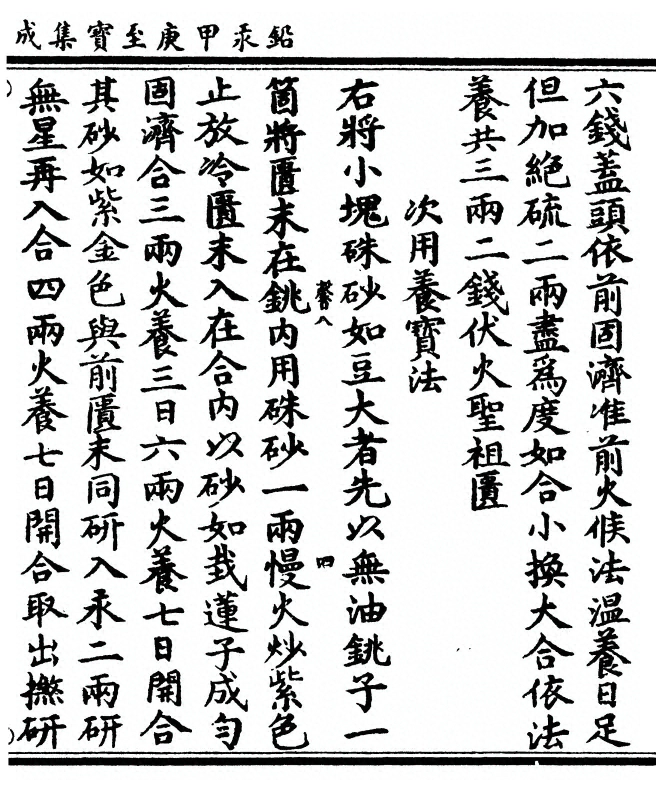 鉛汞甲庚至寶集成
六錢蓋頭依前固濟准前火候法溫養日足
但加絕硫二兩盡爲度如合小換大合依法
養共三兩二錢伏火聖祖匱
次用養寶法
右將小塊硃砂如豆大者先以無油銚子一
箇將匱末在銚內用硃砂一兩慢火炒紫色
止放冷匱末入在合內以砂如栽蓮子成勻
固濟合三兩火養三日六兩火養七日開合
其砂如紫金色與前匱末同研入汞二兩研
無星再入合四兩火養七日開合取出撫研